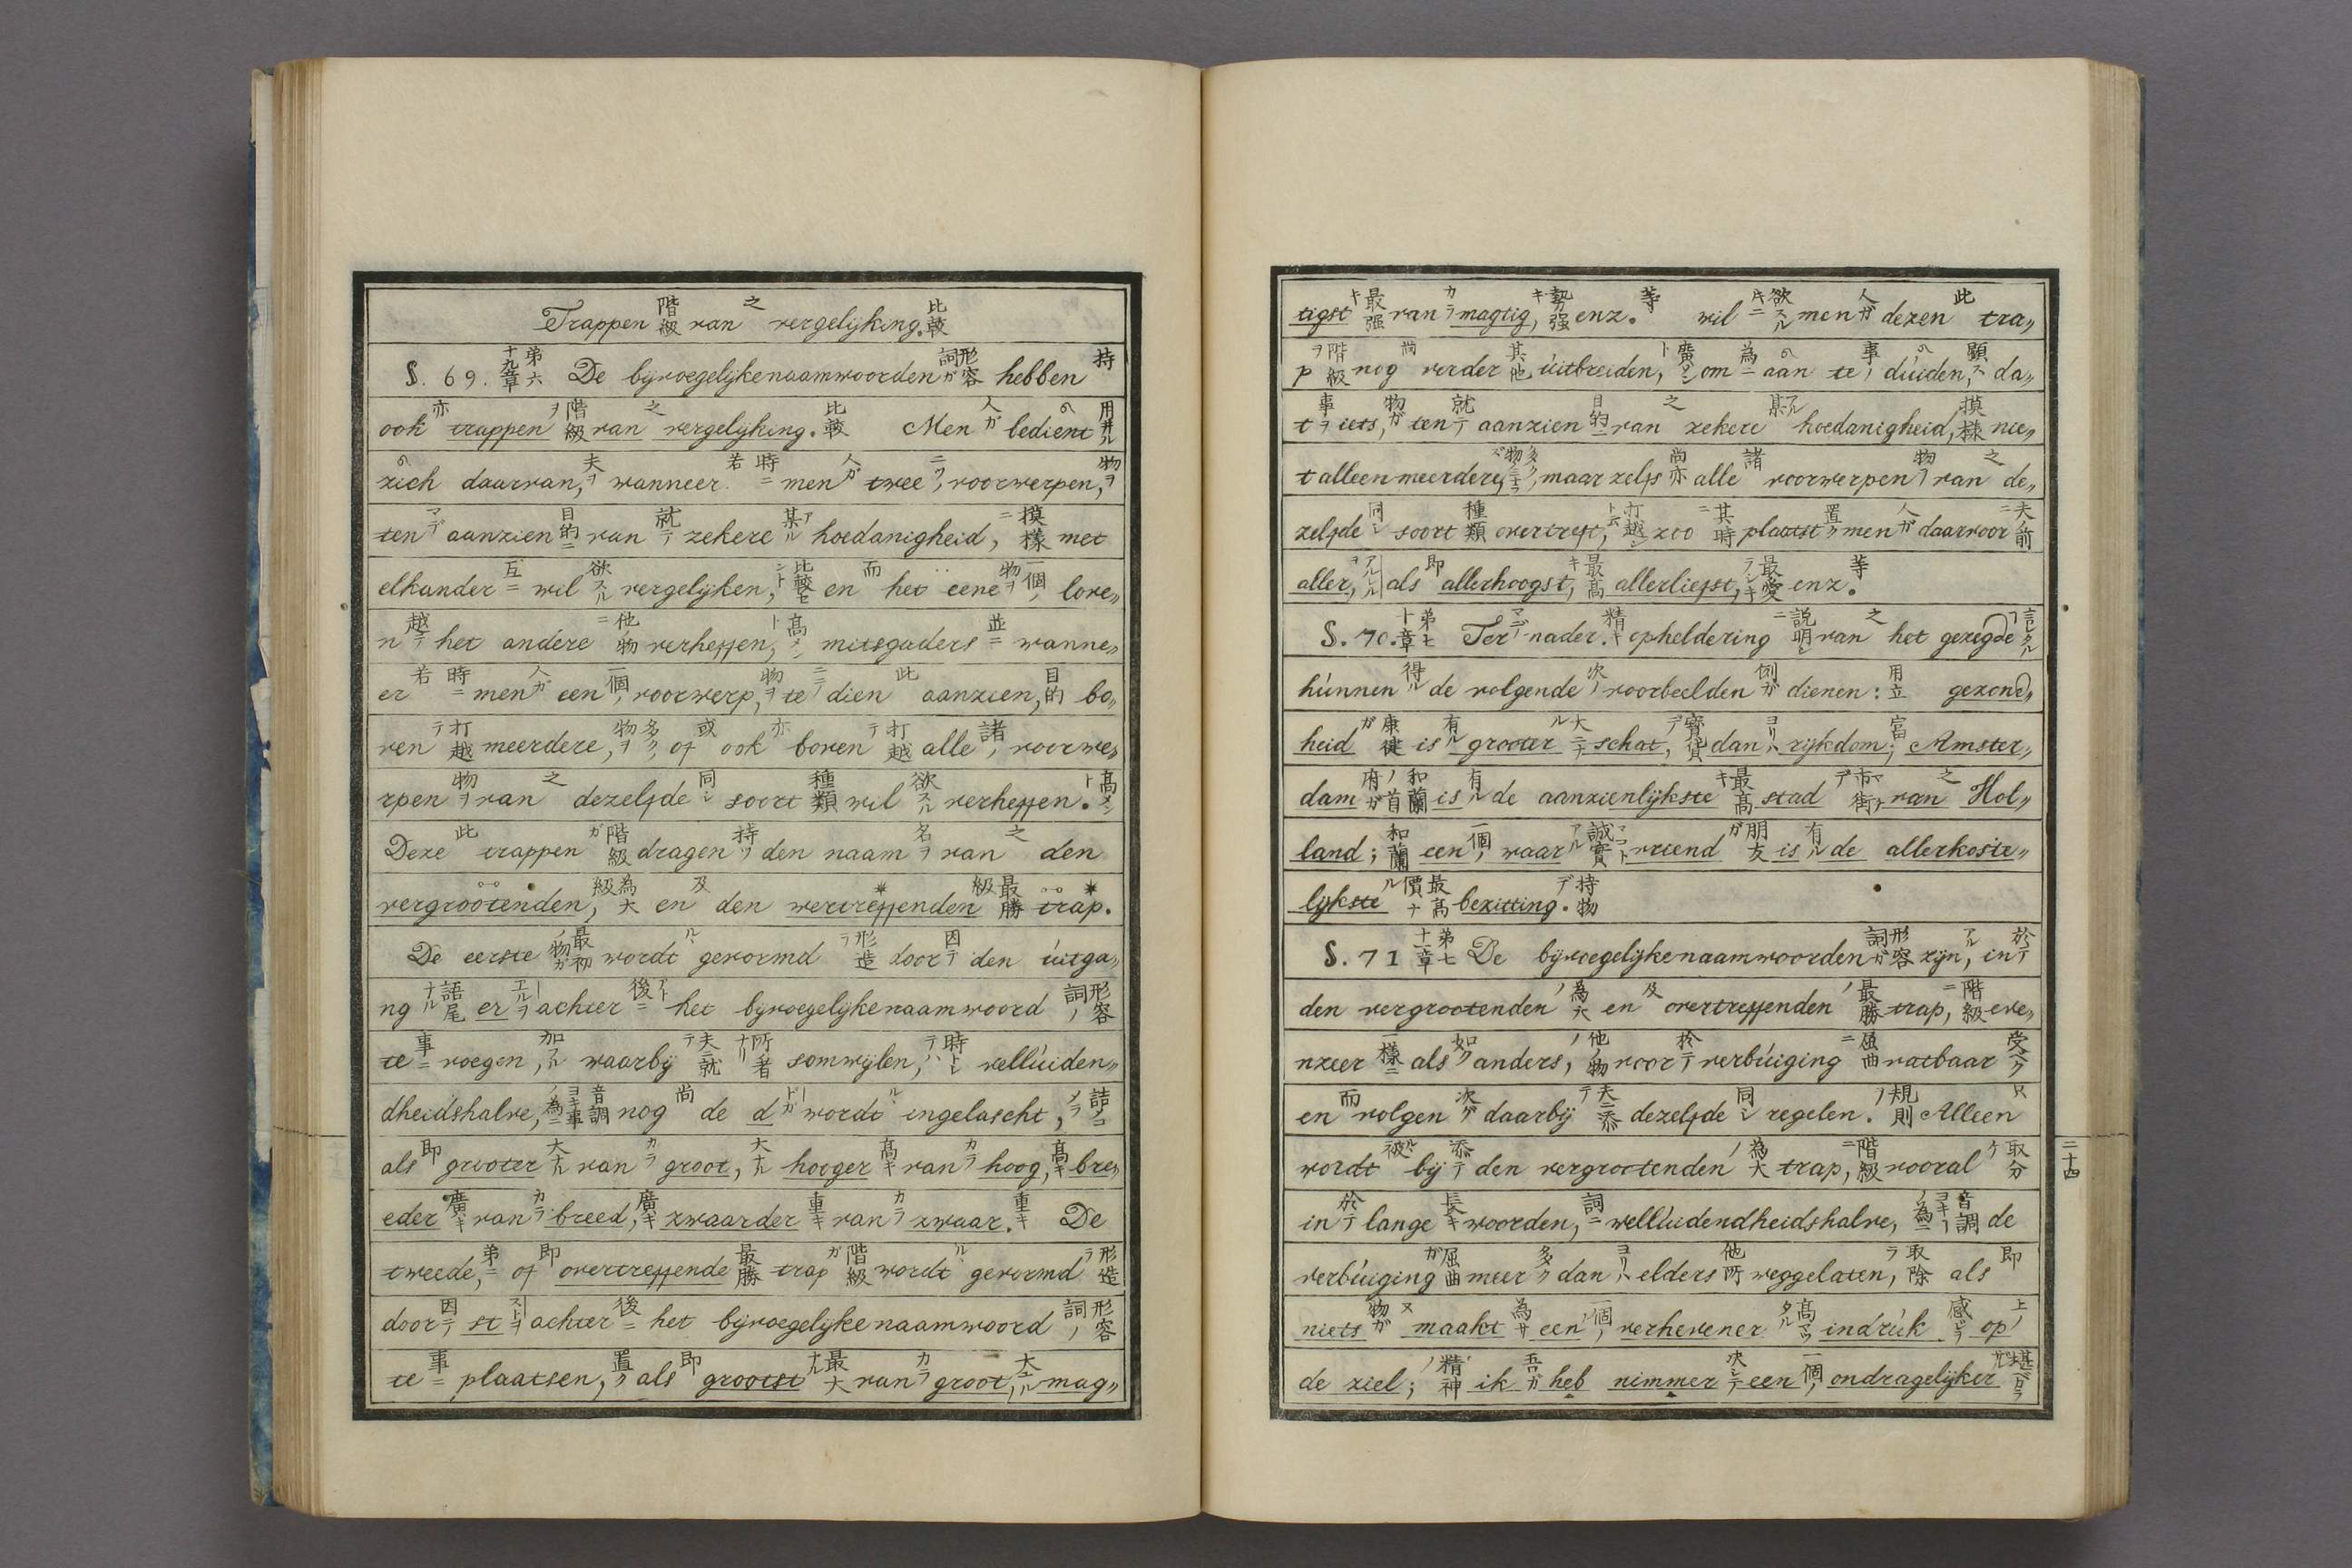 Trappen 階級 van 之 vergelijking. 比較
§. 69. 第六十九章 De bijvoegelijkenaamwoorden 形容詞ガ hebben 持
ook 亦 trappen 階級ヲ van 之 vergelijking. 比較 Men 人ガ bedient 用井ル
zich daarvan, 夫ヲ wanneer 若 時ニ men 人ガ twee 二ツノ voorwerpen, 物ヲ
ten マデ aanzien 目的ニ van 就テ zekere 某アル hoedanigheid, 摸樣ニ met
elkander 互ニ wil 欲スル vergelijken, 比較セント en 而 het eene 一個ノ物ヲ bove„
n 越テ het andere 他物ニ verheffen, 高メント mitsgaders 並ニ wanne„
er 若 時ニ men 人ガ een 一個ノ voorwerp, 物ヲ te dien 此 aanzien, 目的 bo„
ven 打越テ meerdere, 多クノ物ヲ of 或 ook 亦 boven 打越テ alle 諸ノ voorwe„
rpen 物ヲ van 之 dezelfde 同シ soort 種類 wil 欲スル verheffen. 高メント
Deze 此 trappen 階級ガ dragen 持ツ den naam 名ヲ van 之 den
vergrootenden, 為大級 en 及 den wertreffenden 最勝級 trap.
De eerste 最初ノ物ガ wordt ル gevormd 形造ラ door 因テ den uitga„
ng 語尾ナル er エルヲ achter 後アトニ het bijvoegelijkenaamwoord 形容詞ノ
te 事ニ voegen, 加フル waarbij 夫ニ就テ 所ノ者ナリ somwijlen, 時トシテハ vellúiden„
dheidshalve, 音調ヨキ事ノ為ニ nog 尚 de d ドーガ wordt ル ingelascht, 詰メコマ
als 即 grooter 大ナル van カラ groot, 大ナル hooger 高キ van カラ hoog, 高キ bre„
eder 廣キ van カラ breed, 廣キ zwaarder 重キ van カラ zwaar. 重キ De
tweede, 第二 of 即 overtreffende 最勝 trap 階級ガ wordt ル gevormd 形造ラ
door 因テ st ストヲ achter 後ニ het bijvoegelijkenaamwoord 形容詞ノ
te 事ニ plaatsen, 置ク als 即 grootst 最大ナル van カラ groot, 大ナル mag„
tigst 最强キ van カラ magtig, 勢强キ enz. 等 wil 欲スル men 人ガ dezen 此 tra„
p 階級ヲ nog 尚 verder 其他 uitbreiden, 廣メント om 為ニ aan te 事ノ dúiden, 顯ス da„
t 事ヲ iets, 物ガ ten 就テ aanzien 目的ニ van 之 zekere 某アル hoedanigheid, 摸樣 nie„
t alleen meerdere, 多クノ物 maar zelfs 尚亦 alle 諸 voorwerpen 物ヲ van 之 de„
zelfde 同シ soort 種類 overtreft, 打越 zoo 其時ニ plaatst 置ク men 人ガ daarvoor 夫ノ前ニ
aller, アルレルヲ als 即 allerhoogst, 最高キ allerliefst, 最愛ラシキ enz. 等
§. 70. 第七十章 Ter マデ nader 精キ opheldering 説明ニ van 之 het gezegde 言レタル
kúnnen 得ル de volgende 次ノ voorbeelden 例ガ dienen: 用立 gezond„
heid 康健ガ is 有ル grooter 大ナル schat, 寶貨デ dan ヨリハ rijkdom; 富 Amster„
dam 和蘭ノ首府ガ is 有ル de aanzienlijkste 最高キ stad 市街デ van 之 Hol„
land; 和蘭 een 一個ノ waar 誠實マコトアル vriend 朋友ガ is 有ル de allerkoste„
lijkste 最高價ナル bezitting. 持物デ
§. 71 第七十一章 De bijvoegelijkenaamwoorden 形容詞ガ zijn, アル in 於テ
den vergrootenden 為大ノ en 及 overtreffenden 最勝ノ trap, 階級ニ eve„
nzeer 一樣ニ als 如ク anders, 他ノ物ノ voor 於テ verbúiging 屈曲ニ vatbaar 受ベク
en 而 volgen 次グ daarbij 夫ニ添テ dezelfde 同シ regelen. 規則ノ Alleen 只
wordt 被ル bij 添テ den vergrootenden 為大ノ trap, 階級ニ vooral 取分ケ
in 於テ lange 長キ woorden, 詞ニ wellúidendheidshalve, 音調ヨキーノ為ニ de
verbúiging 屈曲ガ meer 多ク dan ヨリハ elders 他所 weggelaten, 取除ラ als 即
niets 物ガ ヌ maakt 為サ een 一個ノ verhevener 高マツタル indrúk 感ジヲ op 上ノ
de ziel; 精神ノ ik 吾ガ heb nimmer 決シテ een 一個ノ ondragelijker 堪
二十四